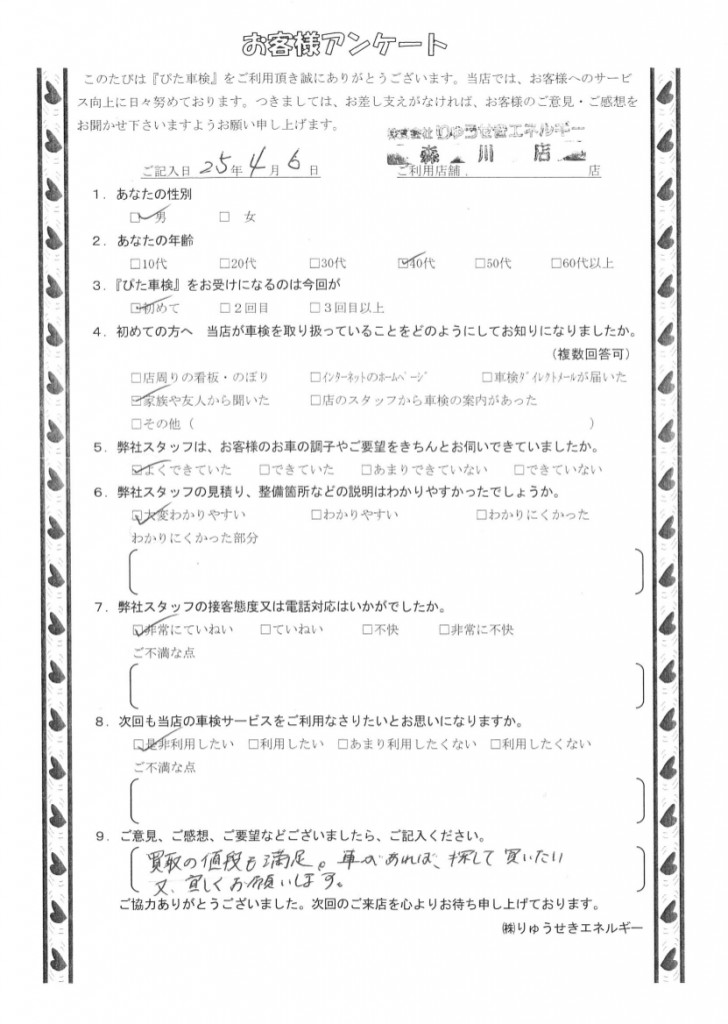 お客様アンケート
このたびは『ぴた車検』をご利用頂き誠にありがとうございます。当店では、お客様へのサービ
ス向上に日々努めております。つきましては、お差し支えがなければ、お客様のご意見・ご感想を
お聞かせ下さいますようお願い申し上げます。
株式会社りゅうせきエネルギー
森川店
ご記入日 25年 4月 6日 ご利用店舗. 店
1．あなたの性別
□ 男 □ 女
2．あなたの年齢
□10代 □20代 □30代 □40代 □50代 □60代以上
3．『ぴた車検』をお受けになるのは今回が
□初めて □２回目 □３回目以上
4．初めての方へ　当店が車検を取り扱っていることをどのようにしてお知りになりましたか。
（複数回答可）
□店周りの看板・のぼり □ｲﾝﾀｰﾈｯﾄのﾎｰﾑﾍﾟｰｼﾞ □車検ﾀﾞｲﾚｸﾄﾒｰﾙが届いた
□家族や友人から聞いた □店のスタッフから車検の案内があった
□その他（ ）
5．弊社スタッフは、お客様のお車の調子やご要望をきちんとお伺いできていましたか。
□よくできていた □できていた □あまりできていない □できていない
6．弊社スタッフの見積り、整備箇所などの説明はわかりやすかったでしょうか。
□大変わかりやすい □わかりやすい □わかりにくかった
わかりにくかった部分
7．弊社スタッフの接客態度又は電話対応はいかがでしたか。
□非常にていねい □ていねい □不快 □非常に不快
ご不満な点
8．次回も当店の車検サービスをご利用なさりたいとお思いになりますか。
□是非利用したい □利用したい □あまり利用したくない □利用したくない
ご不満な点
9．ご意見、ご感想、ご要望などございましたら、ご記入ください。
買取の値段も満足。車があれば、探して買いたい
又、宜しくお願いします。
ご協力ありがとうございました。次回のご来店を心よりお待ち申し上げております。
㈱りゅうせきエネルギー